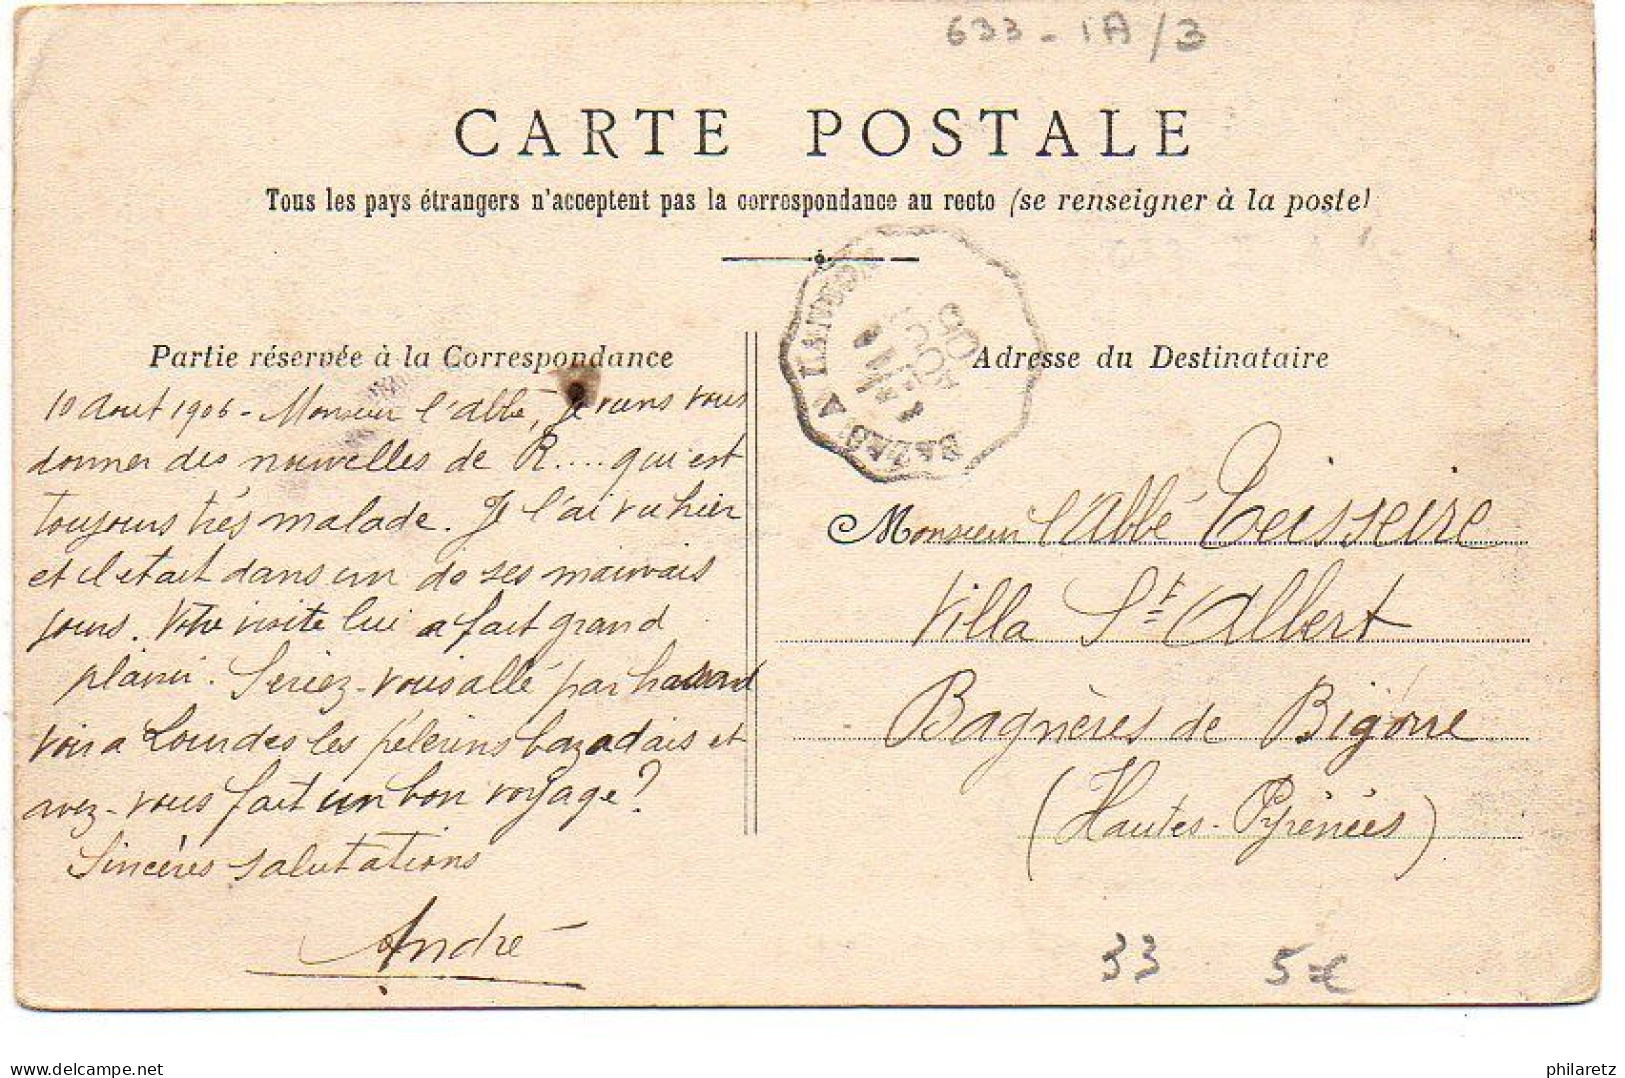 633 - 1A/3
CARTE POSTALE
Tous les pays étrangers n'acceptent pas la correspondance au recto (se renseigner à la poste)
Partie réservée à la Correspondance
10 Aout 1906 - Monsieur l'abbé, je viens vous
donner des nouvelles de R.... qui est
toujours très malade. Je l'ai vu hier
et il était dans un de ses mauvais
jours. Votre visite lui a fait grand
plaisir. Seriez-vous allé par hasard
voir a Lourdes les pélerins bazadais et
avez-vous fait un bon voyage?
Sincères salutations
André
BAZAS A
11
AOUT
06
Adresse du Destinataire
Monsieur l'Abbé Teisseire
Villa St Albert
Bagnères de Bigorre
(Hautes-Pyrénées)
33 5€
delcampe.net
philaretz